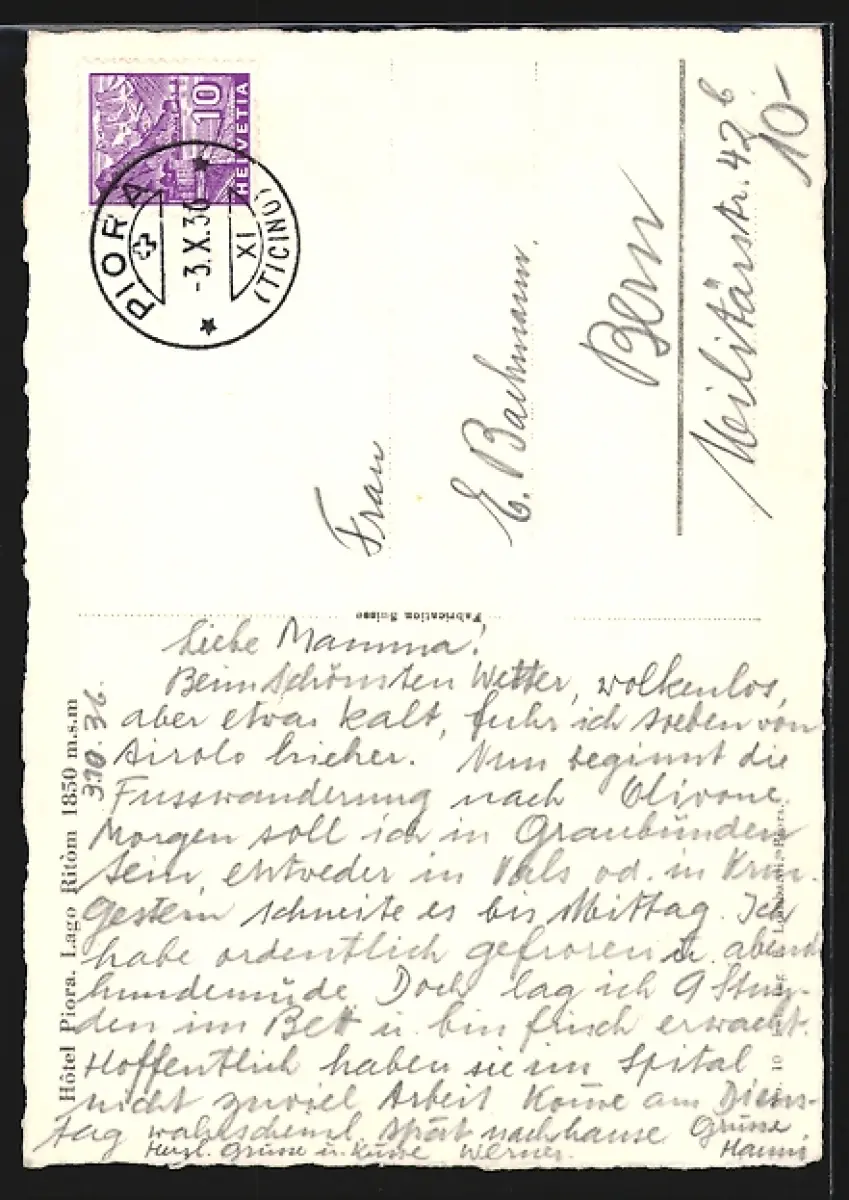 10
HELVETIA
PIORA
-3.X.36
XI
(TICINO)
Frau
E. Bachmann.
Bern
Militärstr. 42b
10-
Fabrication Suisse
Hôtel Piora. Lago Ritòm 1850 m.s.m
3.10.36.
Liebe Mamma!
Beim schönsten Wetter, wolkenlos,
aber etwas kalt, fuhr ich soeben von
Airolo hieher. Nun beginnt die
Fusswanderung nach Olivone.
Morgen soll ich in Graubünden
sein, entweder in Vals od. in
Gestern schneite es bis Mittag. Ich
habe ordentlich gefroren u. abends
hundemüde. Doch lag ich 9 Stun-
den im Bett u. bin frisch erwacht.
Hoffentlich haben sie im Spital
nicht zuviel Arbeit. Komme am Diens-
tag wahrscheinl. spät nachhause. Grüsse
Herzl. Grüsse u. Küsse Werner. Hanni